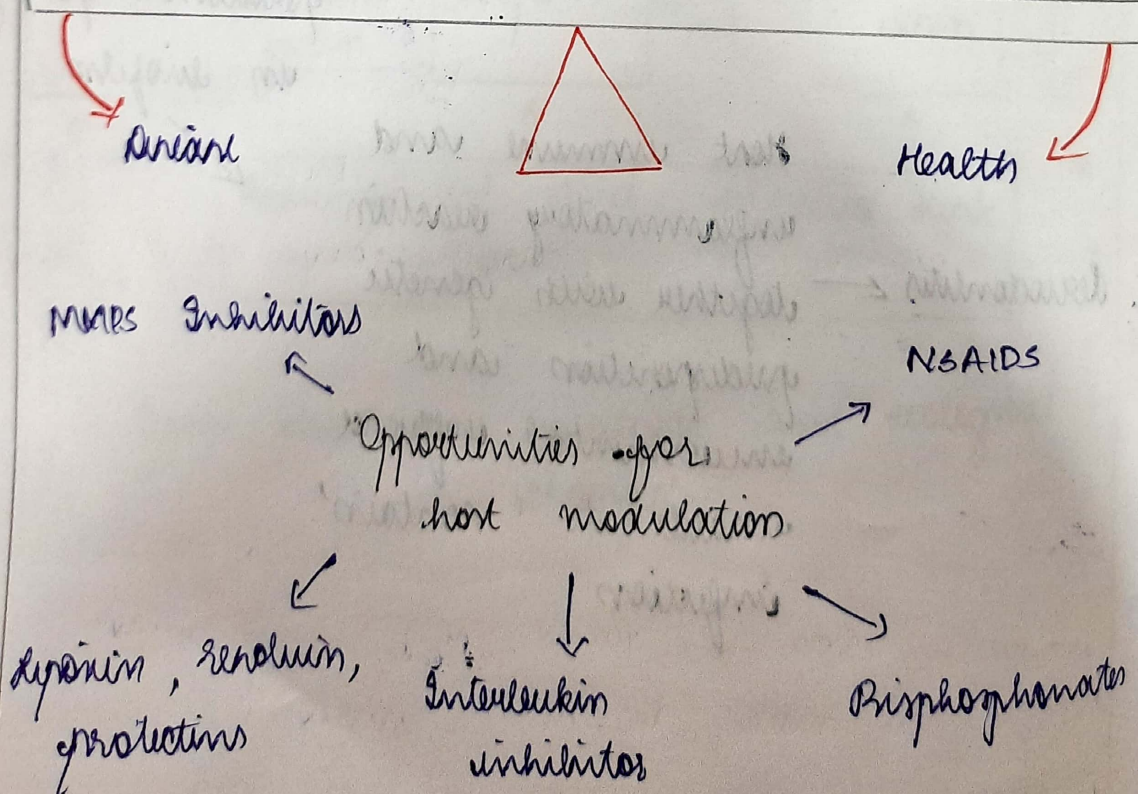 Disease
Health
MMPs Inhibitors
NSAIDS
Opportunities for
host modulation
Lipoxin, resolvin,
protectins
Interleukin
inhibitor
Bisphosphonates